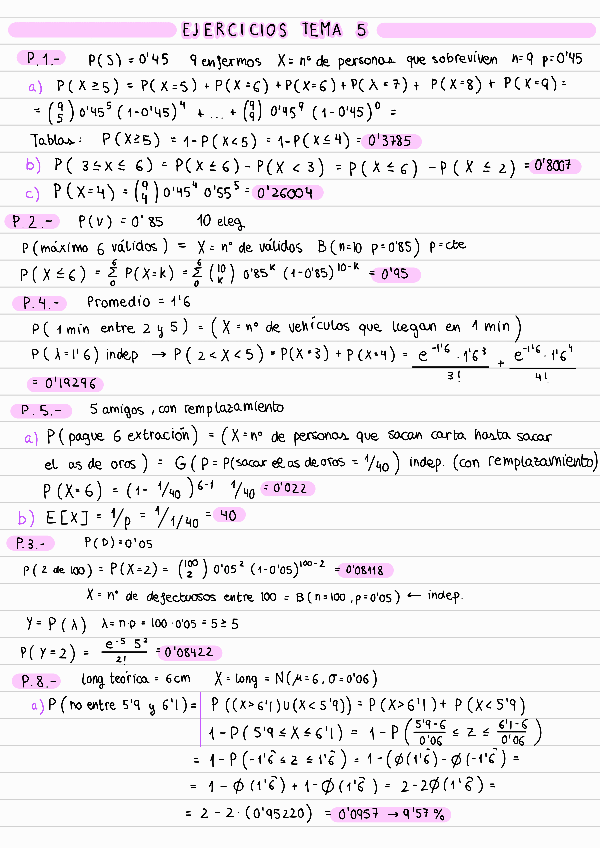 EJERCICIOS TEMA 5
P.1.- P(S) = 0'45 9 enfermos X = nº de personas que sobreviven n=9 p=0'45
a) P(X≥5) = P(X=5) + P(X=6) + P(X=6) + P(X=7) + P(X=8) + P(X=9) =
= (9 5) 0'45⁵ (1-0'45)⁴ + ... + (9 9) 0'45⁹ (1-0'45)⁰ =
Tablas: P(X≥5) = 1-P(X<5) = 1-P(X≤4) = 0'3785
b) P(3≤X≤6) = P(X≤6) - P(X<3) = P(X≤6) - P(X≤2) = 0'8007
c) P(X=4) = (9 4) 0'45⁴ 0'55⁵ = 0'26004
P.2.- P(V) = 0'85 10 eleg.
P(máximo 6 válidos) = X = nº de válidos B(n=10 p=0'85) p=cte
P(X≤6) = Σ⁶₀ P(X=k) = Σ⁶₀ (10 k) 0'85ᵏ (1-0'85)¹⁰⁻ᵏ = 0'95
P.4.- Promedio = 1'6
P(1 min entre 2 y 5) = (X = nº de vehículos que llegan en 1 min)
P(λ=1'6) indep → P(2<X<5) = P(X=3) + P(X=4) = e^-1'6 · 1'6³ / 3! + e^-1'6 · 1'6⁴ / 4!
= 0'19296
P.5.- 5 amigos, con remplazamiento
a) P(pague 6 extración) = (X=nº de personas que sacan carta hasta sacar
el as de oros) = G(p = P(sacar el as de oros = 1/40) indep. (con remplazamiento)
P(X=6) = (1- 1/40)⁶⁻¹ 1/40 = 0'022
b) E[X] = 1/p = 1/1/40 = 40
P.3.- P(D)=0'05
P(2 de 100) = P(X=2) = (100 2) 0'05² (1-0'05)¹⁰⁰⁻² = 0'08118
X = nº de defectuosos entre 100 = B(n=100, p=0'05) ← indep.
Y = P(λ) λ = n·p = 100·0'05 = 5 ≥ 5
P(Y=2) = e⁻⁵ 5² / 2! = 0'08422
P.8.- long teórica = 6cm X = long = N(μ=6, σ=0'06)
a) P(no entre 5'9 y 6'1) = P((X>6'1)∪(X<5'9)) = P(X>6'1) + P(X<5'9)
1-P(5'9≤X≤6'1) = 1-P(5'9-6 / 0'06 ≤ z ≤ 6'1-6 / 0'06)
= 1-P(-1'6̂ ≤ z ≤ 1'6̂) = 1-(Ø(1'6̂)-Ø(-1'6̂) =
= 1-Ø(1'6̂)+1-Ø(1'6̂) = 2-2Ø(1'6̂) =
= 2-2·(0'95220) = 0'0957 → 9'57%